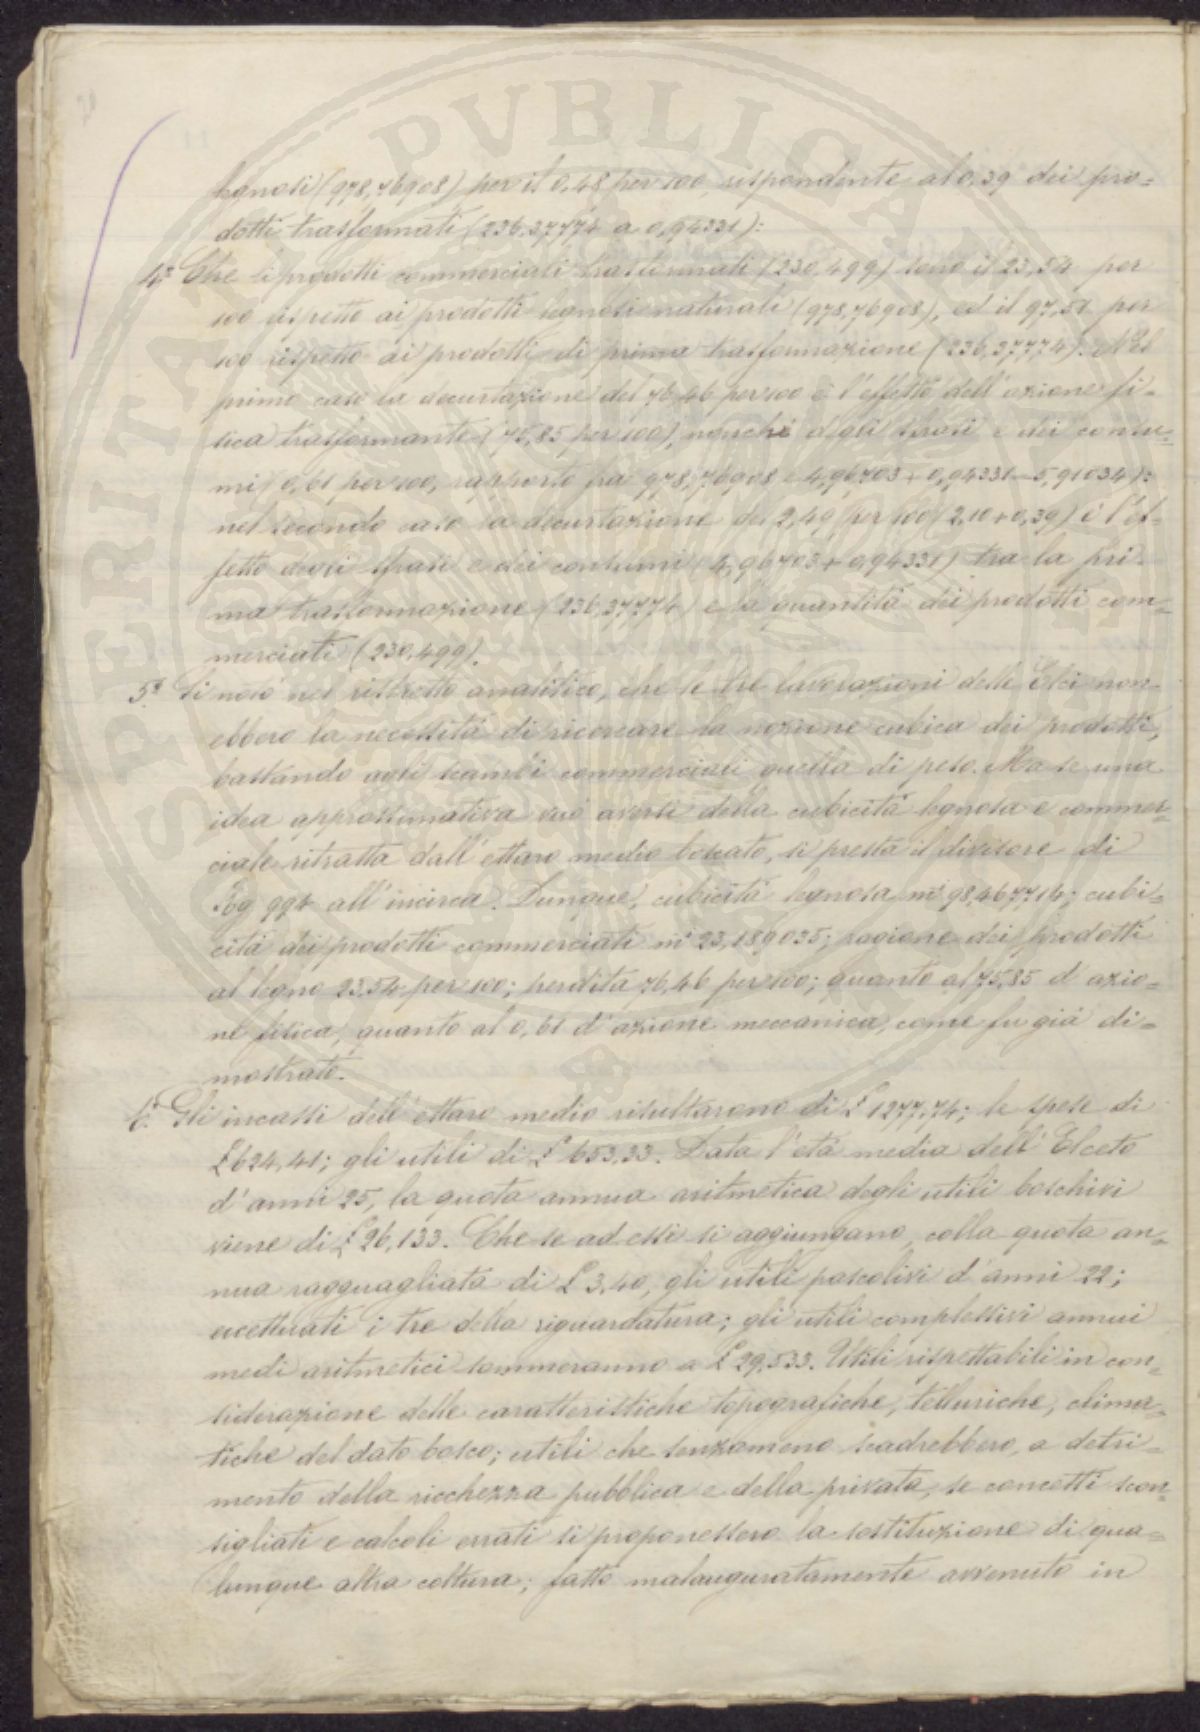 legnosi (978,76908) per il 0,48 per 100 rispondente al 0,39 dei pro=
dotti trasformati (236,37774 a 0,94331):
4.° Che i prodotti commerciali trasformati (230,499) sono il 23,54 per
100 rispetto ai prodotti legnosi naturali (978,76908), ed il 97,51 per
100 rispetto ai prodotti di prima trasformazione (236,37774). Nel
primo caso la decurtazione del 76,46 per 100 è l'effetto dell'azione fi=
sica trasformante (75,85 per 100), nonchè degli sfrasi e dei consu=
mi (0,61 per 100, rapporto fra 978,76908 e 4,96703 + 0,94331 = 5,91034):
nel secondo caso la decurtazione del 2,49 per 100 (2,10 + 0,39) è l'ef=
fetto degli sfrasi e dei consumi (4,96703 + 0,94331) tra la pri=
ma trasformazione (236,37774) e la quantità dei prodotti com=
merciati (230,499).
5.° Si notò nel ristretto analitico, che le tre lavorazioni delle Elci non
ebbero la necessità di ricercare la nozione cubica dei prodotti,
bastando agli scambi commerciali quella di peso. Ma se una
idea approssimativa può aversi della cubicità legnosa e commer=
ciale ritratta dall'ettaro medio boscato, si presta il divisore di
Kg 994 all'incirca. Dunque, cubicità legnosa m³ 98,467714; cubi=
cità dei prodotti commerciati m³ 23,189035; ragione dei prodotti
al legno 23,54 per 100; perdita 76,46 per 100; quanto al 75,85 d'azio=
ne fisica, quanto al 0,61 d'azione meccanica, come fu già di=
mostrato.
6.° Gli incassi dell'ettaro medio risultarono di £ 1277,74; le spese di
£ 624,41; gli utili di £ 653,33. Data l'età media dell'Elceto
d'anni 25, la quota annua aritmetica degli utili boschivi
viene di £ 26,133. Che se ad essi si aggiungano, colla quota an=
nua ragguagliata di £ 3,40, gli utili pascolivi d'anni 22;
eccettuati i tre della riguardatura; gli utili complessivi annui
medi aritmetici sommeranno a £ 29,533. Utili rispettabili in con=
siderazione delle caratteristiche topografiche, telluriche, clima=
tiche del dato bosco; utili che senzameno scadrebbero, a detri=
mento della ricchezza pubblica e della privata, se concetti scon=
sigliati e calcoli errati si proponessero la sostituzione di qua=
lunque altra coltura; fatto malauguratamente avvenuto in
SPERITAT PVBLICAE